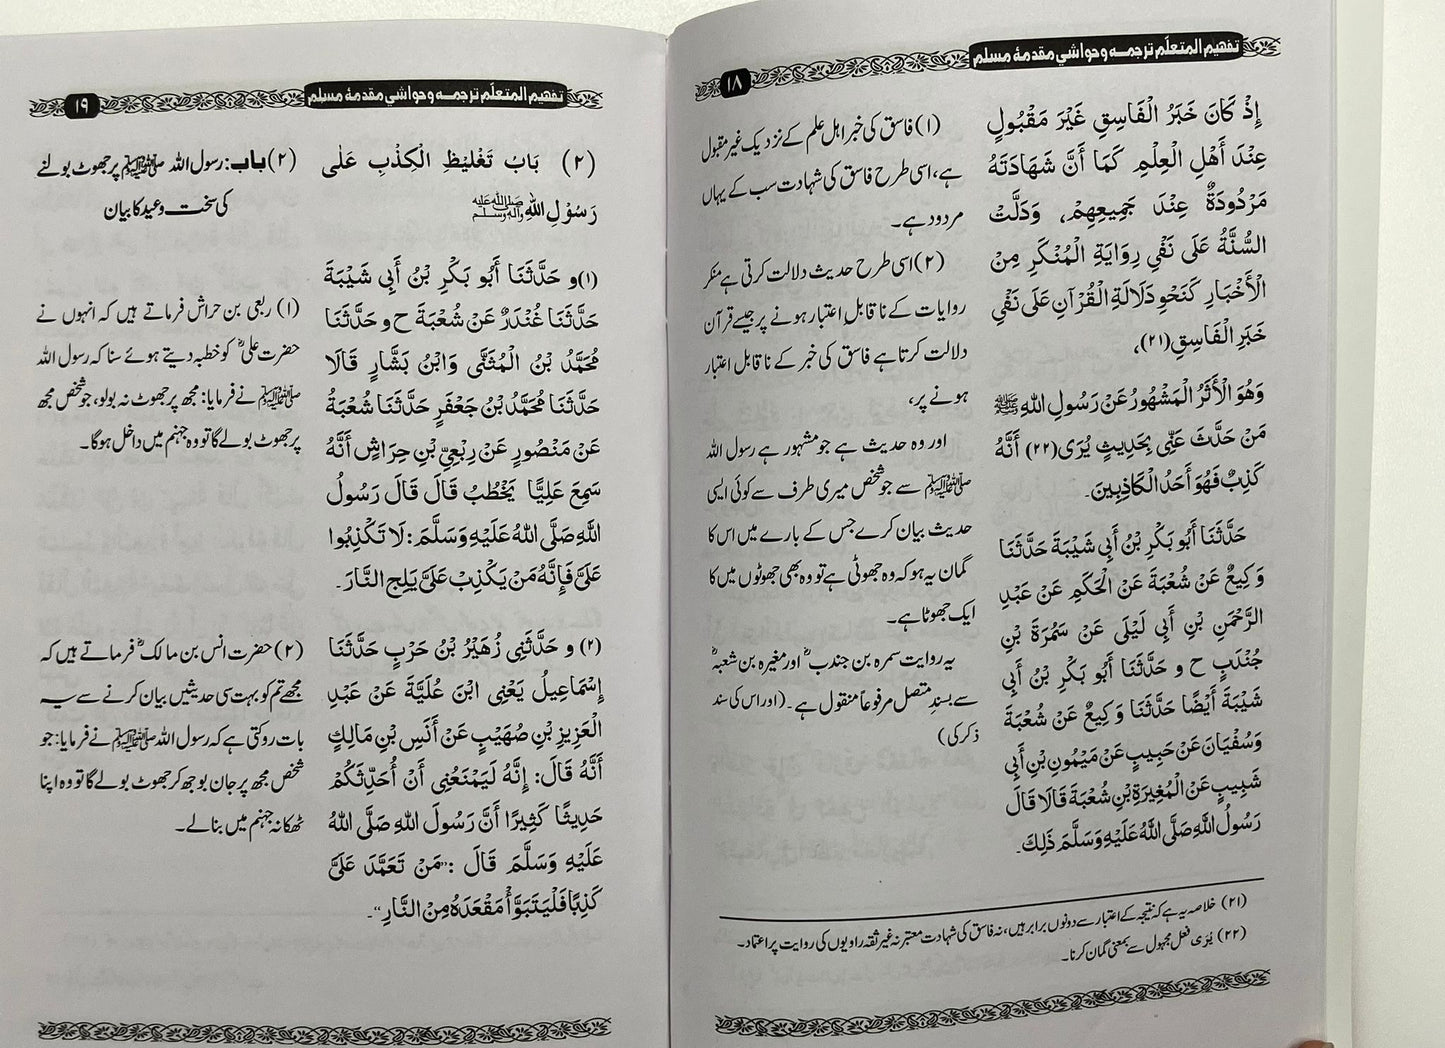 تفهیم المتعلّم ترجمہ و حواشي مقدمۂ مسلم
۱۸
إِذْ كَانَ خَبَرُ الْفَاسِقِ غَيْرَ مَقْبُولٍ
عِنْدَ أَهْلِ الْعِلْمِ كَمَا أَنَّ شَهَادَتَهُ
مَرْدُودَةٌ عِنْدَ جَمِيعِهِمْ، وَدَلَّتْ
السُّنَّةُ عَلَى نَفْيِ رِوَايَةِ الْمُنْكَرِ مِنْ
الْأَخْبَارِ كَنَحْوِ دَلَالَةِ الْقُرْآنِ عَلَى نَفْيِ
خَبَرِ الْفَاسِقِ(۲۱)،
وَهُوَ الْأَثَرُ الْمَشْهُورُ عَنْ رَسُولِ اللهِ ﷺ
مَنْ حَدَّثَ عَنِّي بِحَدِيثٍ يُرَى(۲۲) أَنَّهُ
كَذِبٌ فَهُوَ أَحَدُ الْكَاذِبِينَ۔
حَدَّثَنَا أَبُو بَكْرِ بْنُ أَبِي شَيْبَةَ حَدَّثَنَا
وَكِيعٌ عَنْ شُعْبَةَ عَنْ الْحَكَمِ عَنْ عَبْدِ
الرَّحْمَنِ بْنِ أَبِي لَيْلَى عَنْ سَمُرَةَ بْنِ
جُنْدَبٍ ح و حَدَّثَنَا أَبُو بَكْرِ بْنُ أَبِي
شَيْبَةَ أَيْضًا حَدَّثَنَا وَكِيعٌ عَنْ شُعْبَةَ
وَسُفْيَانَ عَنْ حَبِيبٍ عَنْ مَيْمُونِ بْنِ أَبِي
شَبِيبٍ عَنْ الْمُغِيرَةِ بْنِ شُعْبَةَ قَالَا قَالَ
رَسُولُ اللهِ صَلَّى اللهُ عَلَيْهِ وَسَلَّمَ ذَلِكَ۔
(۱) فاسق کی خبر اہل علم کے نزدیک غیر مقبول
ہے، اسی طرح فاسق کی شہادت سب کے یہاں
مردود ہے۔
(۲) اسی طرح حدیث دلالت کرتی ہے منکر
روایات کے ناقابلِ اعتبار ہونے پر جیسے قرآن
دلالت کرتا ہے فاسق کی خبر کے ناقابل اعتبار
ہونے پر،
اور وہ حدیث ہے جو مشہور ہے رسول اللہ
ﷺ سے جو شخص میری طرف سے کوئی ایسی
حدیث بیان کرے جس کے بارے میں اس کا
گمان یہ ہو کہ وہ جھوٹی ہے تو وہ بھی جھوٹوں میں کا
ایک جھوٹا ہے۔
یہ روایت سمرہ بن جندبؓ اور مغیرہ بن شعبہؓ
سے بسندِ متصل مرفوعاً منقول ہے۔ (اور اس کی سند
ذکر کی)
(۲۱) خلاصہ یہ ہے کہ نتیجہ کے اعتبار سے دونوں برابر ہیں، نہ فاسق کی شہادت معتبر نہ غیر ثقہ راویوں کی روایت پر اعتماد۔
(۲۲) یُرَی فعل مجہول سے بمعنی گمان کرنا۔
تفهیم المتعلّم ترجمہ و حواشي مقدمۂ مسلم
۱۹
(۲) بَابُ تَغْلِيظِ الْكِذْبِ عَلٰى
رَسُوْلِ اللهِ ﷺ
(۱) و حَدَّثَنَا أَبُو بَكْرِ بْنُ أَبِي شَيْبَةَ
حَدَّثَنَا غُنْدَرٌ عَنْ شُعْبَةَ ح و حَدَّثَنَا
مُحَمَّدُ بْنُ الْمُثَنَّى وَابْنُ بَشَّارٍ قَالَا
حَدَّثَنَا مُحَمَّدُ بْنُ جَعْفَرٍ حَدَّثَنَا شُعْبَةُ
عَنْ مَنْصُورٍ عَنْ رِبْعِيِّ بْنِ حِرَاشٍ أَنَّهُ
سَمِعَ عَلِيًّا يَخْطُبُ قَالَ قَالَ رَسُولُ
اللهِ صَلَّى اللهُ عَلَيْهِ وَسَلَّمَ: لَا تَكْذِبُوا
عَلَيَّ فَإِنَّهُ مَنْ يَكْذِبْ عَلَيَّ يَلِجِ النَّارَ۔
(۲) و حَدَّثَنِي زُهَيْرُ بْنُ حَرْبٍ حَدَّثَنَا
إِسْمَاعِيلُ يَعْنِي ابْنَ عُلَيَّةَ عَنْ عَبْدِ
الْعَزِيزِ بْنِ صُهَيْبٍ عَنْ أَنَسِ بْنِ مَالِكٍ
أَنَّهُ قَالَ: إِنَّهُ لَيَمْنَعُنِي أَنْ أُحَدِّثَكُمْ
حَدِيثًا كَثِيرًا أَنَّ رَسُولَ اللهِ صَلَّى اللهُ
عَلَيْهِ وَسَلَّمَ قَالَ :”مَنْ تَعَمَّدَ عَلَيَّ
كَذِبًا فَلْيَتَبَوَّأْ مَقْعَدَهُ مِنْ النَّارِ“۔
(۲) باب: رسول اللہ ﷺ پر جھوٹ بولنے
کی سخت وعید کا بیان
(۱) ربعی بن حراش فرماتے ہیں کہ انہوں نے
حضرت علیؓ کو خطبہ دیتے ہوئے سنا کہ رسول اللہ
ﷺ نے فرمایا: مجھ پر جھوٹ نہ بولو، جو شخص مجھ
پر جھوٹ بولے گا تو وہ جہنم میں داخل ہوگا۔
(۲) حضرت انس بن مالکؓ فرماتے ہیں کہ
مجھے تم کو بہت سی حدیثیں بیان کرنے سے یہ
بات روکتی ہے کہ رسول اللہ ﷺ نے فرمایا: جو
شخص مجھ پر جان بوجھ کر جھوٹ بولے گا تو وہ اپنا
ٹھکانہ جہنم میں بنالے۔